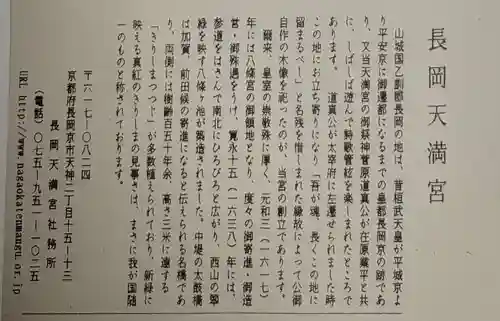 長岡天満宮
山城国乙訓郡長岡の地は、昔桓武天皇が平城京よ
り平安京に御遷都になるまでの皇都長岡京の跡であ
り、又当天満宮の御祭神菅原道真公が在原業平と共
に、しばしば遊んで詩歌管絃を楽しまれたところで
あります。 道真公が太宰府に左遷せられました時
この地にお立ち寄りになり「吾が魂、長くこの地に
留まるべし」と名残を惜しまれた縁故によって公御
自作の木像を祀ったのが、当宮の創立であります。
爾来、皇室の崇敬殊に厚く、元和三（一六一七）
年には八條宮の御領地となり、度々の御寄進・御造
営・御殊遇をうけ、寛永十五（一六三八）年には、
参道をはさんで南北にひろびろと広がり、西山の翠
緑を映す八條ヶ池が築造されました。中堤の太鼓橋
は加賀、前田候の寄進になると伝えられる名橋であ
り、両側には樹齢百五十年余、高さ三米に達する
「きりしまつつじ」が多数植えられており、新緑に
映える真紅のきりしまの見事さは、まさに我が国随
一のものと称されております。
〒六一七－〇八二四
京都府長岡京市天神二丁目十五－十三
長岡天満宮社務所
（電話）〇七五－九五一－一〇二五
URL http://www.nagaokatenmangu.or.jp